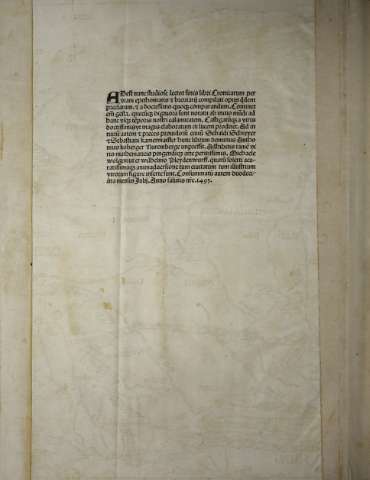 ADest nunc studiose lector finis libri Cronicarum per
viam epithomatis ⁊ breuiarij compilati opus q̃dem
preclarum. ⁊ a doctissimo quoqꝫ comparandum. Continet
em̃ gesta. quecũqꝫ digniora sunt notatu ab initio mũdi ad
hanc vsqꝫ tẽporis nostri calamitatem. Castigatũqꝫ a viris
doctissimis vt magis elaboratum in lucem prodiret. Ad in
tuitũ autem ⁊ preces prouidorũ ciuiũ Sebaldi Schreyer
⁊ Sebastiani kamermaister hunc librum dominus Antho
nius koberger Nuremberge impressit. Adhibitis tamẽ vi
ris mathematicis pingendiqꝫ arte peritissimis. Michaele
wolgemut et wilhelmo Pleydenwurff. quarũ solerti acu
ratissimaqꝫ animaduersione tum ciuitatum tum illustrium
virorum figure inserte sunt. Consummatũ autem duodeci
ma mensis Julij. Anno salutis nr̃e. 1493.